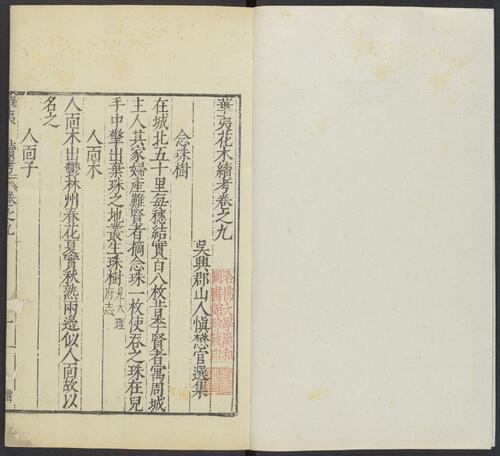 華夷花木續考卷之九
吳興郡山人愼懋官選集
念珠樹
在城北五十里每穗結實百八枚昔李賢者寓周城
主人其家婦產難賢者摘念珠一枚使吞之珠在兒
手中擎出棄珠之地叢生珠樹見大理府志
人面木
人面木出鬱林州春花夏實秋熟兩邊似人面故以
名之
人面子